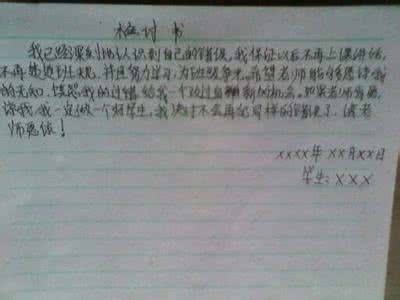 检讨书
我已经深刻地认识到自己的错误,我保证以后不再上课讲话,
不再违反班规,并且努力学习,为班级争光。希望老师能够原谅我
的无知,饶恕我的过错,给我一个改过自新的机会。如果老师肯原
谅我,我一定做一个好学生,我决对不会再犯同样的错误了,请老
师宽恕!
xxxx年xx月xx日
学生:xxx